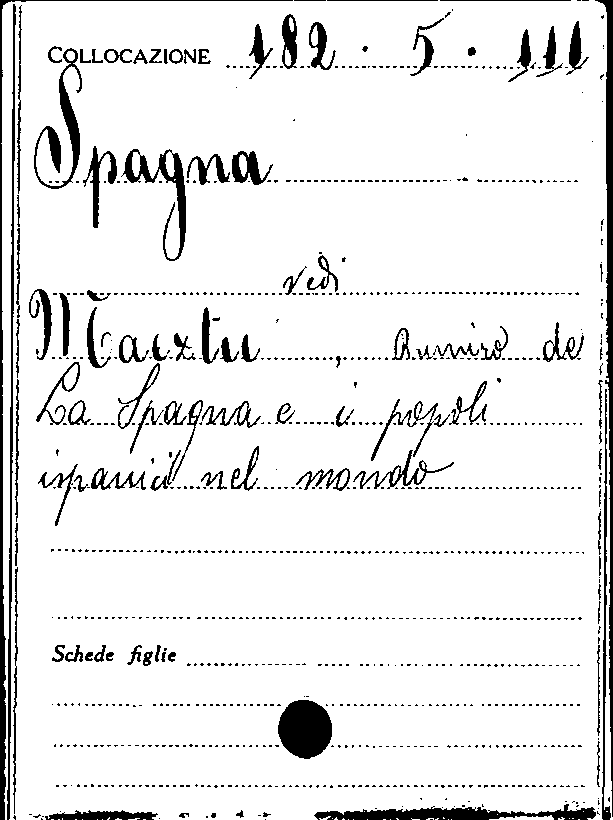 COLLOCAZIONE 182 · 5 · 111
Spagna
vedi
Maeztu, Ramiro de
La Spagna e i popoli
ispanici nel mondo
Schede figlie